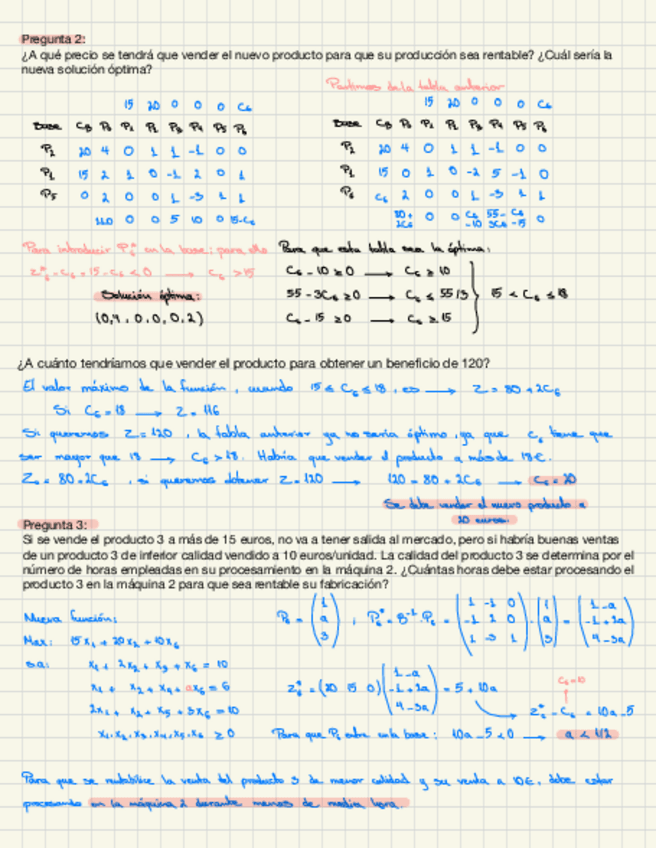 Pregunta 2:
¿A qué precio se tendrá que vender el nuevo producto para que su producción sea rentable? ¿Cuál sería la
nueva solución óptima?
Partimos de la tabla anterior
15 20 0 0 0 C6
Base CB P0 P1 P2 P3 P4 P5 P6
P2 20 4 0 1 1 -1 0 0
P1 15 2 1 0 -1 2 0 1
P5 0 2 0 0 1 -3 1 1
110 0 0 5 10 0 15-C6
15 20 0 0 0 C6
Base CB P0 P1 P2 P3 P4 P5 P6
P2 20 4 0 1 1 -1 0 0
P1 15 0 1 0 -2 5 -1 0
P6 C6 2 0 0 1 -3 1 1
80+2C6 0 0 C6-10 55-3C6 C6-15 0
Para introducir P6* en la base: para ello
Z6*-C6 = 15-C6 < 0 → C6 > 15
Solución óptima:
(0,4,0,0,0,2)
Para que esta tabla sea la óptima:
C6 - 10 ≥ 0 → C6 ≥ 10
55 - 3C6 ≥ 0 → C6 ≤ 55/3
C6 - 15 ≥ 0 → C6 ≥ 15
15 < C6 ≤ 18
¿A cuánto tendríamos que vender el producto para obtener un beneficio de 120?
El valor máximo de la función, cuando 15 ≤ C6 ≤ 18, es → Z = 80 + 2C6
Si C6 = 18 → Z = 116
Si queremos Z = 120, la tabla anterior ya no sería óptimo, ya que C6 tiene que
ser mayor que 18 → C6 > 18. Habría que vender el producto a más de 18€.
Z0 = 80 + 2C6, si queremos obtener Z = 120 → 120 = 80 + 2C6 → C6 = 20
Se debe vender el nuevo producto a
20 euros.
Pregunta 3:
Si se vende el producto 3 a más de 15 euros, no va a tener salida al mercado, pero si habría buenas ventas
de un producto 3 de inferior calidad vendido a 10 euros/unidad. La calidad del producto 3 se determina por el
número de horas empleadas en su procesamiento en la máquina 2. ¿Cuántas horas debe estar procesando el
producto 3 en la máquina 2 para que sea rentable su fabricación?
Nueva función:
Max: 15x1 + 20x2 + 10x6
s.a: x1 + 2x2 + x3 + x6 = 10
x1 + x2 + x4 + ax6 = 6
2x1 + x2 + x5 + 3x6 = 10
x1, x2, x3, x4, x5, x6 ≥ 0
P6 = (1 a 3) ; P6* = B-1·P6 = (1 -1 0 -1 2 0 1 -3 1)·(1 a 3) = (1-a -1+2a 4-3a)
Z6* = (20 15 0)(1-a -1+2a 4-3a) = 5 + 10a
C6=10
Z6* - C6 = 10a - 5
Para que P6 entre en la base: 10a - 5 < 0 → a < 1/2
Para que se rentabilice la venta del producto 3 de menor calidad y su venta a 10€, debe estar
procesando en la máquina 2 durante menos de media hora.